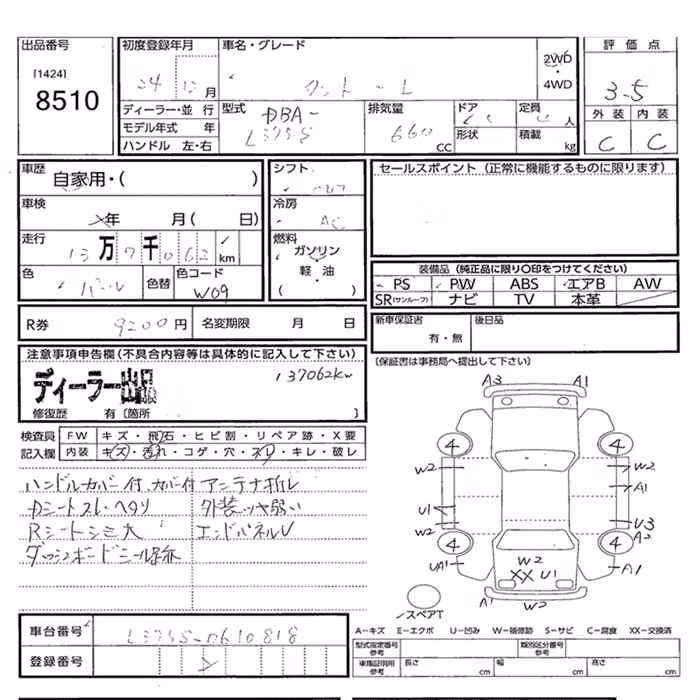 出品番号
[1424]
8510
初度登録年月
24 12 月
車名・グレード
タント - L
2WD
・
4WD
評価点
3-5
外装 内装
C C
ディーラー・並行
モデル年式 年
ハンドル 左・右
型式
DBA-
L375S
排気量
660
CC
ドア
形状
定員
人
積載
kg
車歴
自家用・( )
車検
年 月( 日)
走行
13万7千062 km
色
パール
色替
色コード
W09
シフト
冷房
AC
燃料
ガソリン
軽・油
( )
セールスポイント (正常に機能するものに限ります)
装備品 (純正品に限り○印をつけてください)
PS PW ABS エアB AW
SR(サンルーフ) ナビ TV 本革
R券 9200円 名変期限 月 日
新車保証書
有・無
後日品
(保証書は事務局へ提出して下さい)
注意事項申告欄(不具合内容等は具体的に記入して下さい)
ディーラー出品
137062km
修復歴 有〔箇所 〕
検査員
記入欄
FW キズ・飛石・ヒビ割・リペア跡・X要
内装 キズ・汚れ・コゲ・穴・スリ・キレ・破レ
ハンドルカバー付、カバー付 アンテナ折レ
Dシートスレ・ヘタリ 外装ツヤ弱い
Rシートシミ大 エンドパネルU
ダッシュボードビニール跡
A3 A1
4 4
W2 W2
A1
U1
W2 U3
4 4
A2
UA1 A1
W2
XX U1
A1 W2
スペアT
車台番号 L375S-0610818
登録番号
A-キズ E-エクボ U-凹み W-補修跡 S-サビ C-腐食 XX-交換済
型式指定番号
参考
類別区分番号
参考
車庫証明用
参考
長さ cm 幅 cm 高さ cm